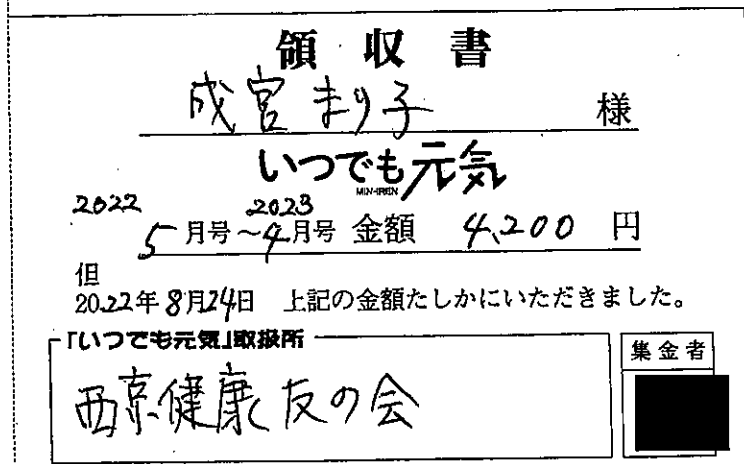 領収書
成宮まり子 様
いつでも元気
MIN-IREN
2022 2023
5月号～4月号 金額 4,200 円
但
2022年8月24日 上記の金額たしかにいただきました。
「いつでも元気」取扱所
集金者
西京健康友の会